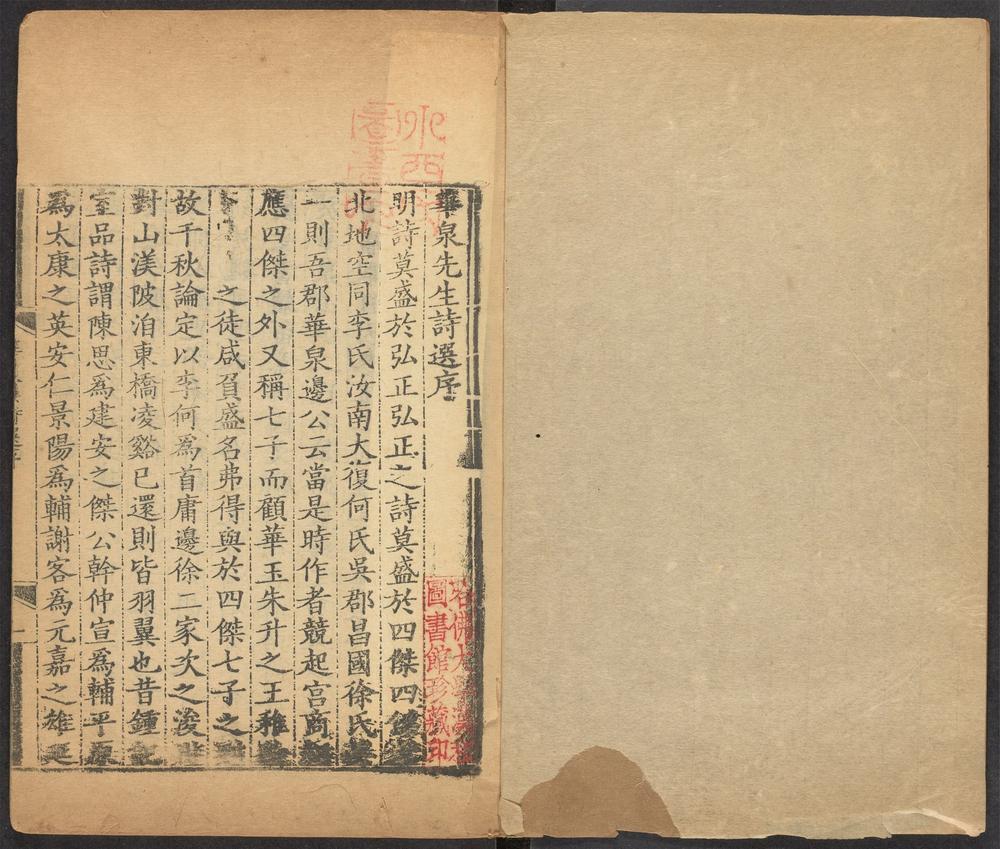 華泉先生詩選序
明詩莫盛於弘正弘正之詩莫盛於四傑四傑
北地空同李氏汝南大復何氏吳郡昌國徐氏其
一則吾郡華泉邊公云當是時作者競起宮商
應四傑之外又稱七子而顧華玉朱升之王稚
之徒咸負盛名弗得與於四傑七子之
故千秋論定以李何為首庸邊徐二家次之浚
對山渼陂洎東橋凌谿已還則皆羽翼也昔鍾
室品詩謂陳思為建安之傑公幹仲宣為輔平原
為太康之英安仁景陽為輔謝客為元嘉之雄延
哈佛大學漢和
圖書館珍藏印